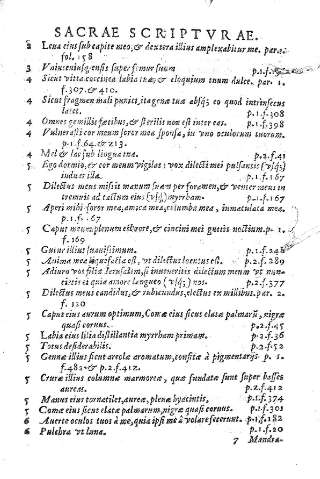 SACRAE SCRIPTVRAE.
2 Leua eius sub capite meo, & dextera illius amplexabitur me. par. 2.
fol. 158
3 Vniuscuiusq; ensis super femur suum p.1.f.
4 Sicut vitta coccinea labia tua; & eloquium tuum dulce. par. 1.
f. 307. & 410.
4 Sicut fragmen mali punici, ita genæ tuæ absq; eo quod intrinsecus
latet. p.1.f.308
4 Omnes gemellis fœtibus, & sterilis non est inter eas. p.1.f.398
4 Vulnerasti cor meum soror mea sponsa, in vno oculorum tuorum.
p.1.f.64. & 213.
4 Mel & lac sub lingua tua. p.2.f.41
5 Ego dormio, & cor meum vigilat: vox dilecti mei pulsantis (vsq;)
induer illa. p.1.f.167
5 Dilectus meus misit manum suam per foramen, & venter meus in
tremuit ad tactum eius (vsq;) myrrham. p.1.f.167
5 Aperi mihi soror mea, amica mea, columba mea, inmaculata mea.
p.1.f.167
5 Caput meum plenum est rore, & cincini mei guttis noctium. p.1.
f. 169
5 Guttur illius suauissimum. p.1.f.248
5 Anima mea liquefacta est, vt dilectus locutus est. p.2.f.289
5 Adiuro vos filiæ Jerusalem, si inueneritis dilectum meum vt nun-
cietis ei quia amore langueo (vsq;) nos. p.2.f.377
5 Dilectus meus candidus, & rubicundus, electus ex millibus. par. 2.
f. 120
5 Caput eius aurum optimum, Comæ eius sicut elatæ palmarũ, nigræ
quasi coruus. p.2.f.45
5 Labia eius lilia distillantia myrrham primam. p.2.f.36
5 Totus desiderabilis. p.2.f.52
5 Genæ illius sicut areolæ aromatum, consitæ à pigmentarijs p. 1.
f.482. & p.2.f.412.
5 Crura illius columnæ marmoreæ, quæ fundatæ sunt super basses
aureas. p.2.f.412
5 Manus eius tornatiles, aureæ, plenæ hyacintis. p.1.f.374
5 Comæ eius sicut elatæ palmarum, nigræ quasi coruus. p.1.f.301
6 Auerte oculos tuos à me, quia ipsi me à volare fecerunt. p.1.f.182
6 Pulchra vt luna. p.1.f.20
7 Mandra-